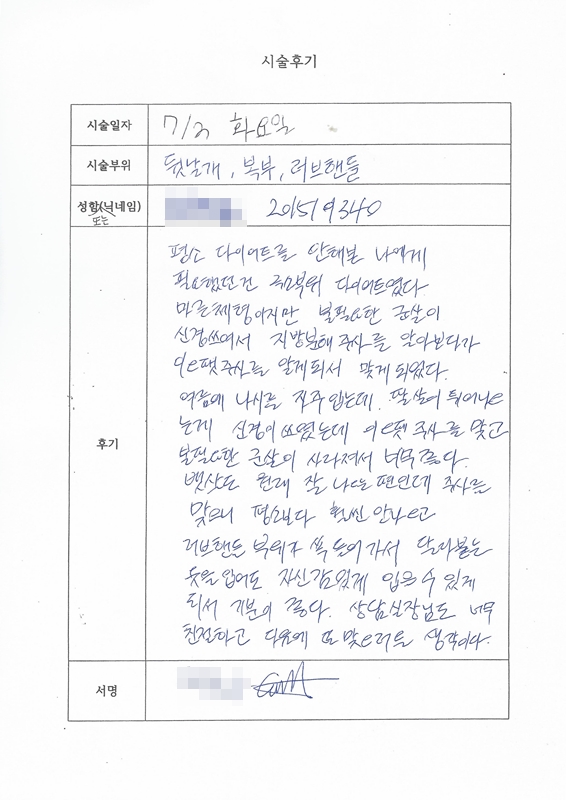 시술후기
시술일자 7/2 화요일
시술부위 뒷날개, 복부, 러브핸들
성함(닉네임) 201519340
또는
후기
평소 다이어트를 안해본 나에게
필요했던건 국소부위 다이어트였다
마른체형이지만 불필요한 군살이
신경쓰여서 지방분해주사를 알아보다가
주사를 알게되서 맞게되었다.
여름에 나시를 자주 입는데, 팔살이 튀어나오
는게 신경이 쓰였는데 주사를 맞고
불필요한 군살이 사라져서 너무 좋다.
뱃살도 원래 잘 나오는 편인데 주사를
맞으니 평소보다 훨씬 안나오고
러브핸들 부위가 쏙 들어가서 달라붙는
옷을 입어도 자신감있게 입을 수 있게
되서 기분이 좋다. 상담실장님도 너무
친절하고 다음에 또 맞으러올 생각이다.
서명